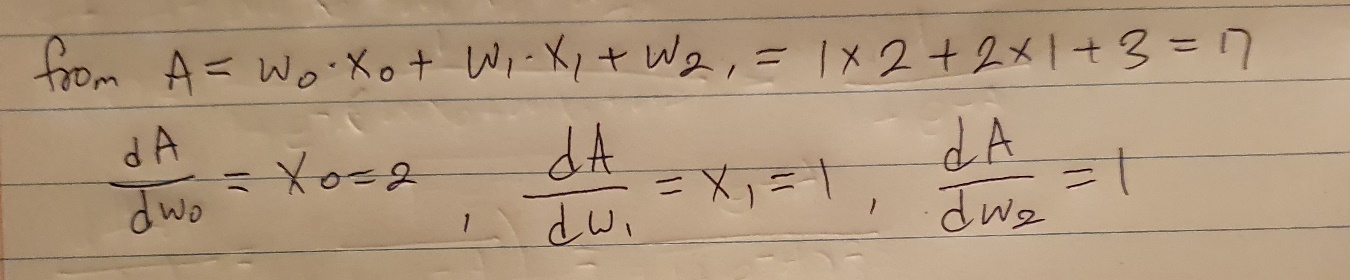 from A = w₀·x₀ + w₁·x₁ + w₂, = 1×2+2×1+3 = 7
dA/dw₀ = x₀=2, dA/dw₁ = x₁=1, dA/dw₂ = 1